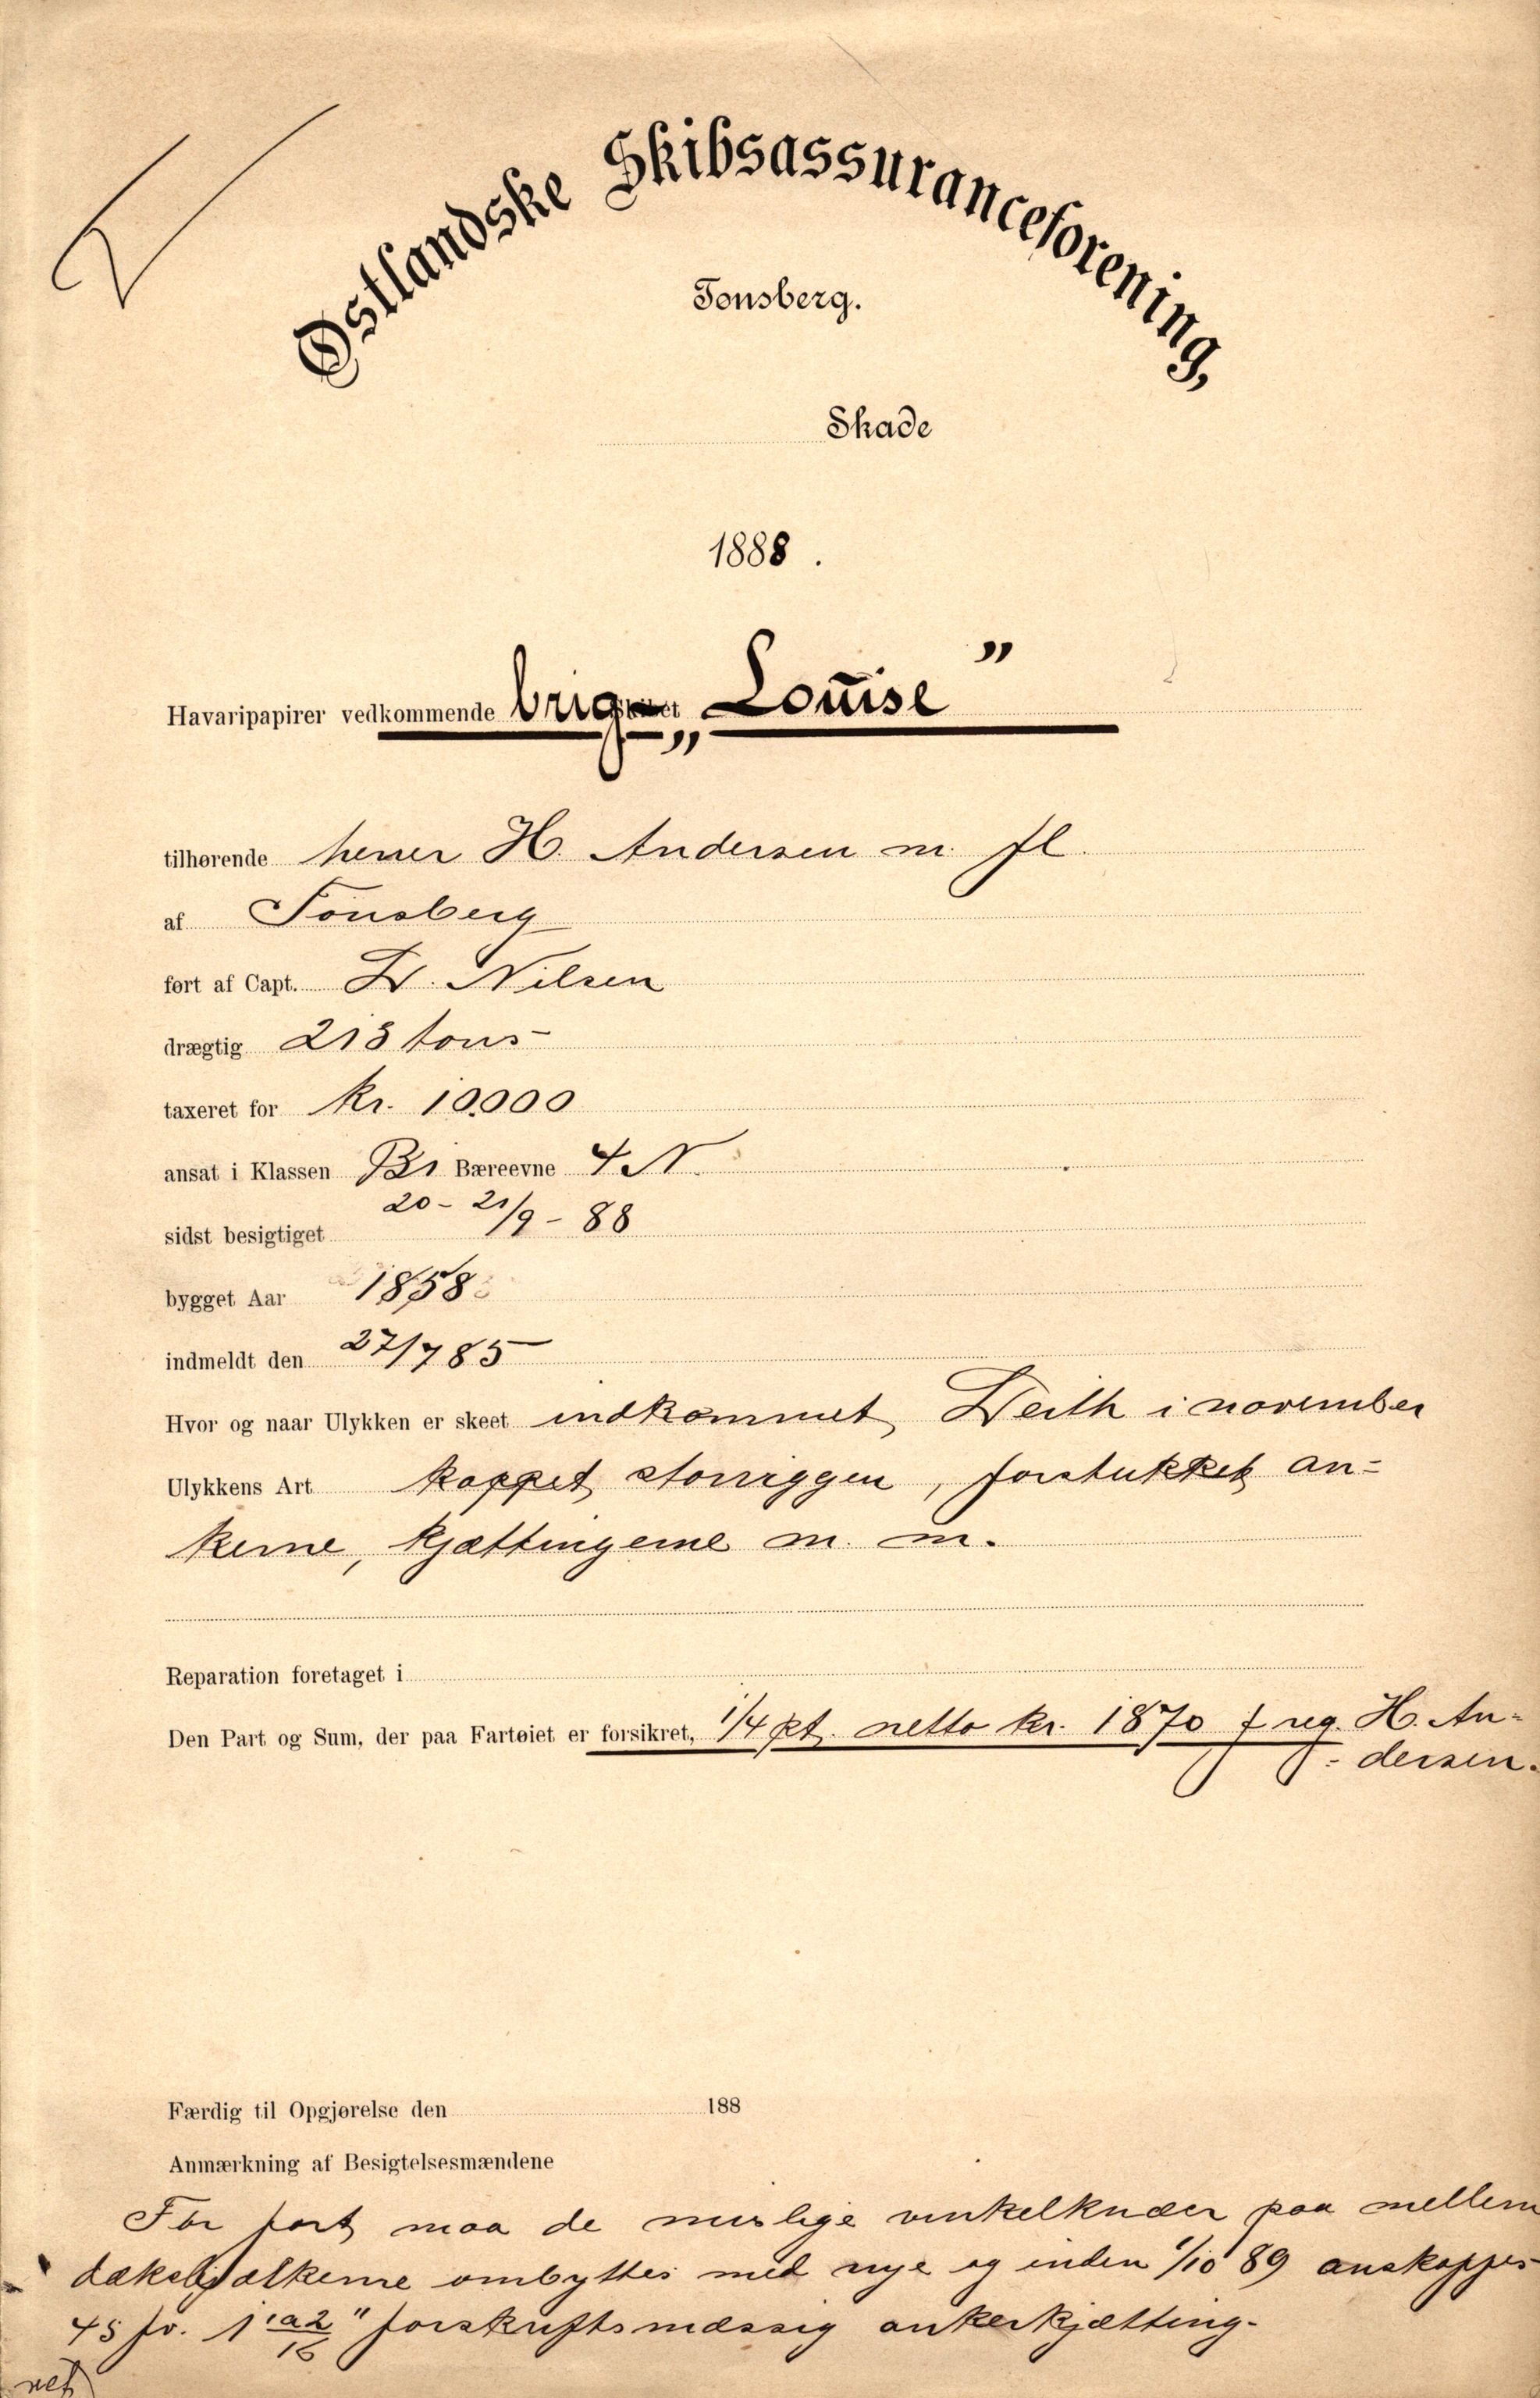 Østlandske Skibsassuranceforening,
Tønsberg.
Skade
1888.
Havaripapirer vedkommende brig „Louise”
tilhørende herrer H. Andersen m. fl.
af Tønsberg
ført af Capt. L. Nilsen
drægtig 213 tons
taxeret for kr. 10.000
ansat i Klassen B1 Bæreevne 4 N.
sidst besigtiget 20–21/9 – 88
bygget Aar 1858
indmeldt den 27/7 85
Hvor og naar Ulykken er skeet indkommet Leith i november
Ulykkens Art kappet storriggen, forstukket an=
kerne, kjættingerne m. m.
Reparation foretaget i
Den Part og Sum, der paa Fartøiet er forsikret, 1/4 pt. netto kr. 1870 f reg. H. An=
=dersen.
Færdig til Opgjørelse den 188
Anmærkning af Besigtelsesmændene
Før fart maa de mislige vinkelknæer paa mellem
dæksbjælkerne ombyttes med nye og inden 1/10 89 anskaffes
45 fv. 1" a 2/16" forskriftsmæssig ankerkjætting.